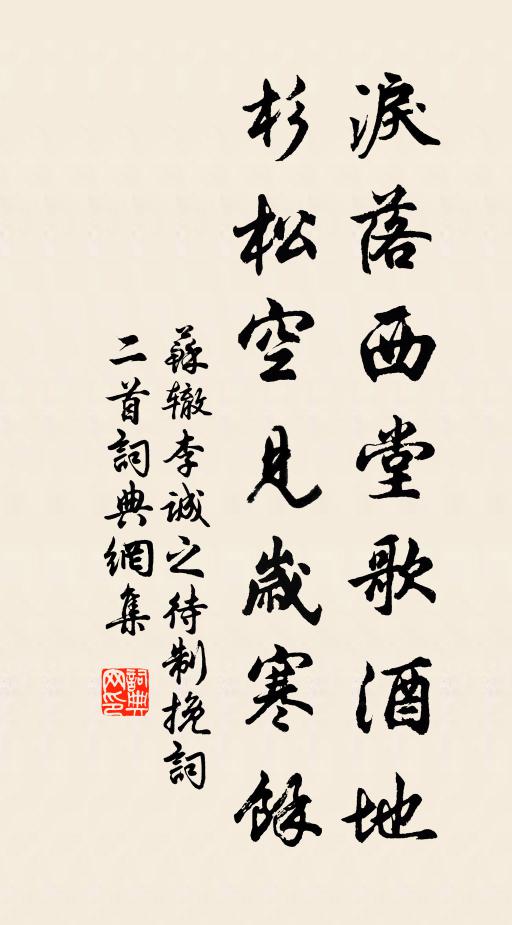 淚落西堂歌酒地
杉松空見歲寒餘
蘇轍李誠之待制挽詞
二首詞典網集
詞典
网印